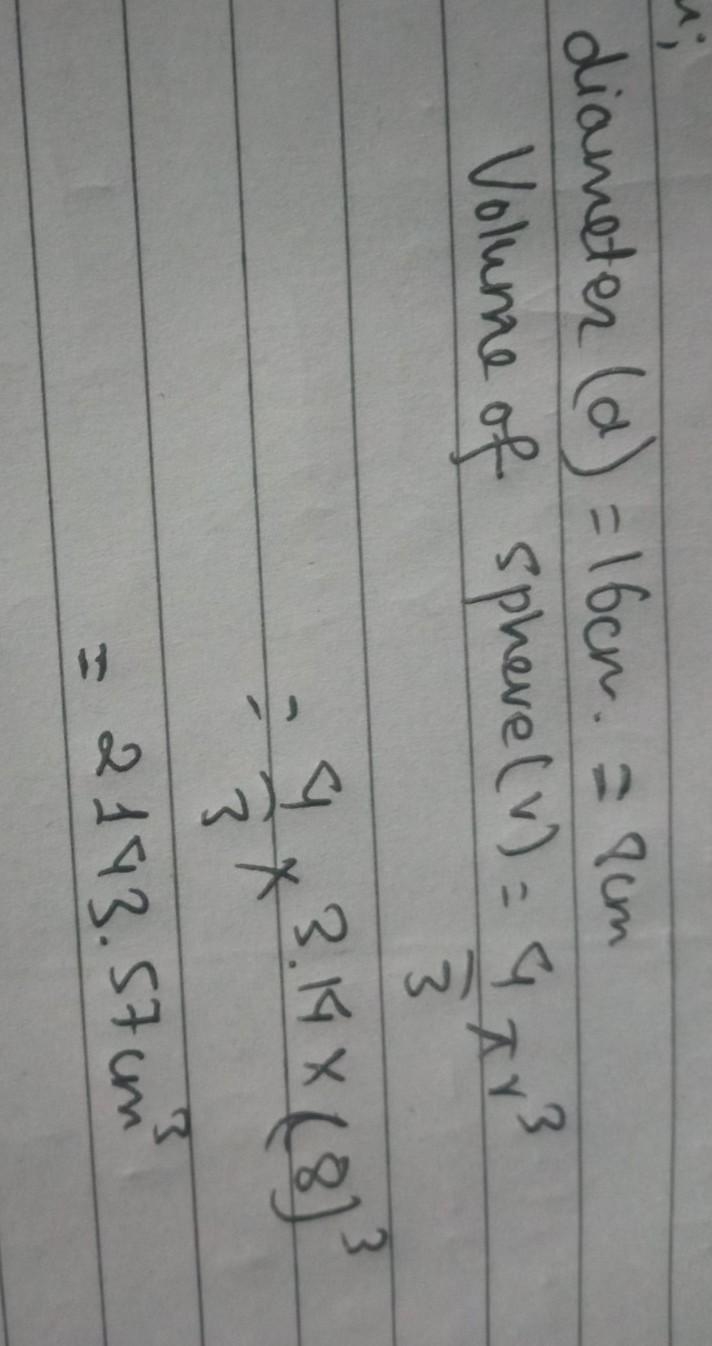 diameter (d) = 16cm. = 8cm
Volume of sphere (v) = 4/3 πr³
= 4/3 × 3.14 × (8)³
= 2143.57cm³